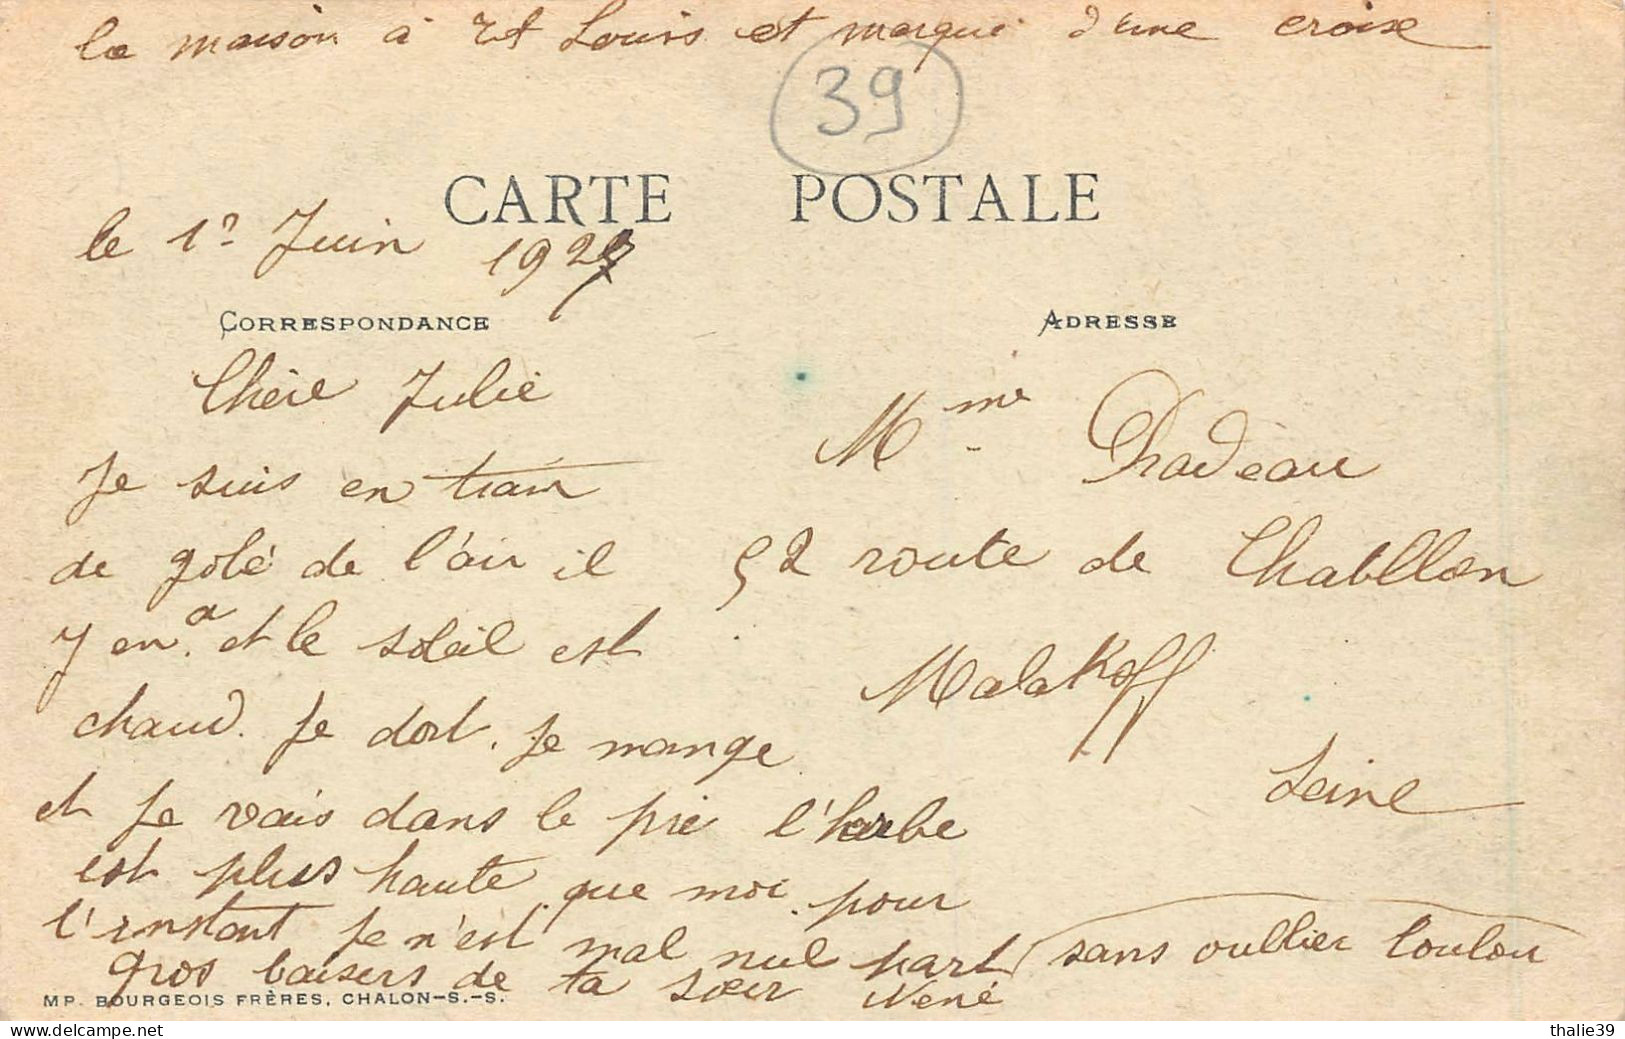 la maison à St Louis et marqué d'une croise
39
CARTE POSTALE
le 1? Juin 1927
CORRESPONDANCE
ADRESSE
Chère Julie
Je suis en train
de gobé de l'air il
y en a et le soleil est
chaud. Je dort. je mange
et je vais dans le pré l'herbe
est plus haute que moi. pour
l'instant je n'est mal nul part
sans oullier Loulou
gros baisers de ta sœur Nené
Mme
52 route de Chatillon
Malakoff
Seine
MP. BOURGEOIS FRÈRES, CHALON-S.-S.
thalie39